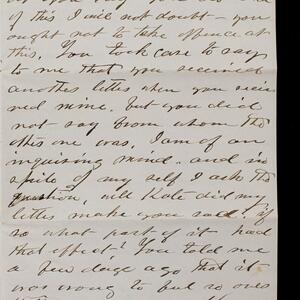 of this I will not doubt - you
ought not to take offence at
this. You took care to say
to me that you received
another letter when you recei
ved mine. but you did
not say from whom tho
this one was. I am of an
inquiring mind. and in
spite of my self I ask the
question, will Kate did my
letter make you sad. if
so what part of it had
that effect? You told me
a few days ago that it
was wrong to but so ones